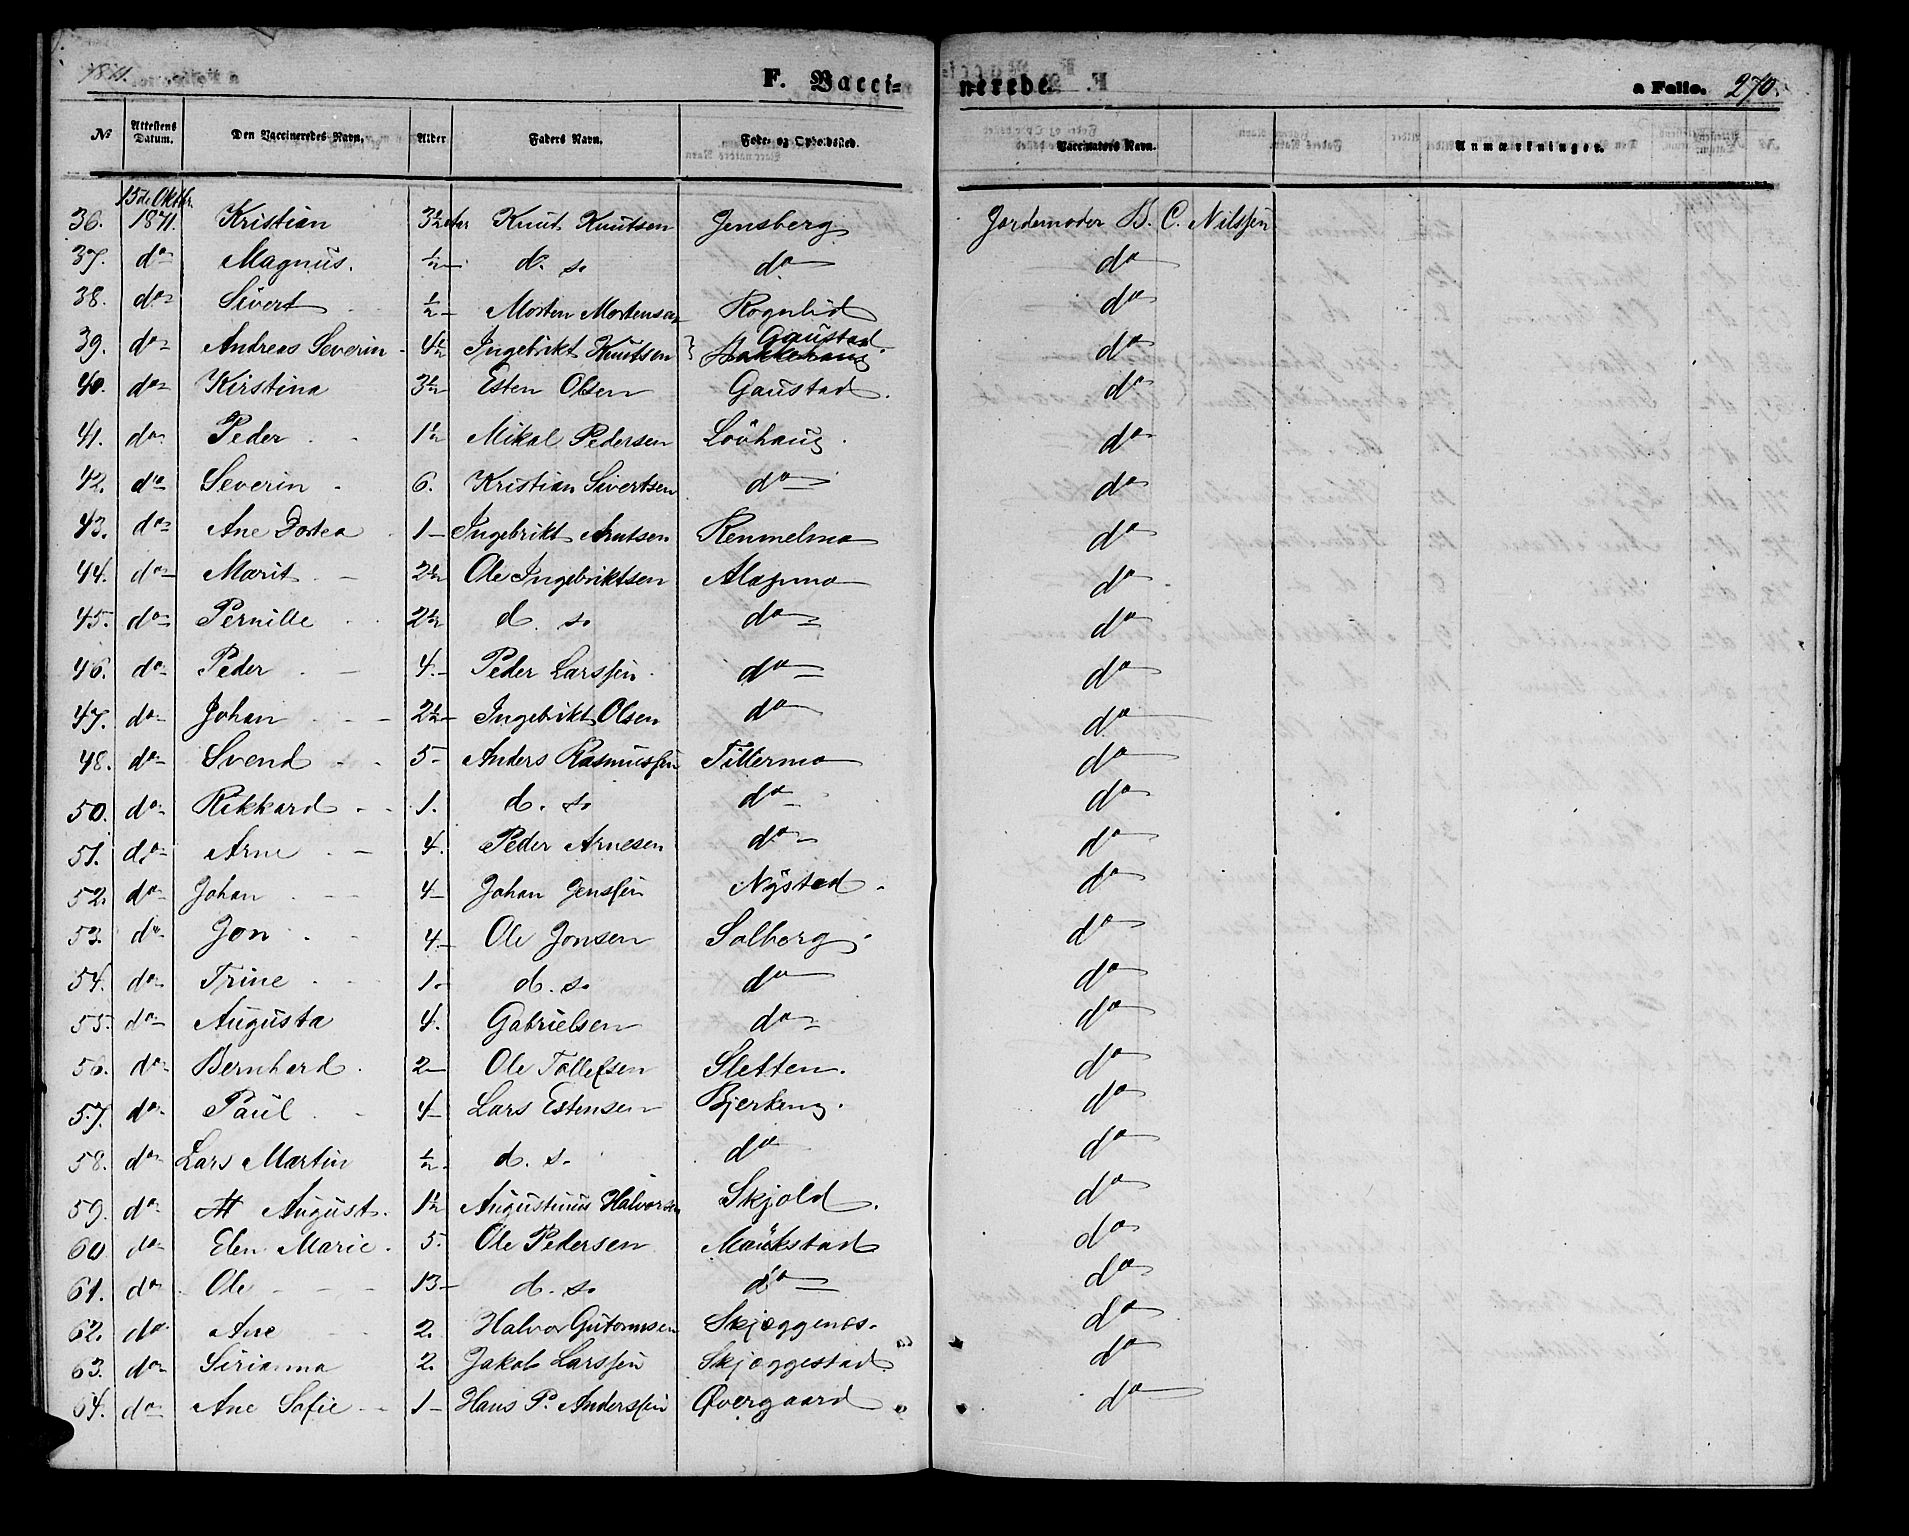 1871. F. Vacci- nerede a Folio. 270.
No Attestens Datum. Den Vaccineredes Navn. Alder Faders Navn. Føde- og Opholdssted. Vaccinators Navn. Anmærkninger.
15de Oktbr.
36. 1871. Kristian 3½ Knut Knutsen Jensberg Jordemoder B. C. Nilssen
37. do Magnus. ½ d. s. do do
38. do Sivert ½ Morten Mortensen Rognlid do
Gaustad
39. do Andreas Severin 4½ Ingebrikt Knutsen do
40. do Kirstina 3½ Esten Olsen Gaustad. do
41. do Peder 1½ Mikal Pedersen Lövhaug. do
42. do Severin 6. Kristian Sivertsen do do
43. do Ane Dortea 1 Ingebrikt Arntsen Remmelmo do
44. do Marit 2½ Ole Ingebriktsen do
45. do Pernille 2½ d. s. do do
46. do Peder 4. Peder Larssen do do
47. do Johan 2½ Ingebrikt Olsen do do
48. do Svend 5 Anders Rasmussen Tillermo do
50. do Rikkard 1. d. s. do do
51. do Arne 4. Peder Arnesen do do
52. do Johan 4 Johan Jenssen Nÿstad do
53. do Jon 4 Ole Jonsen Solberg do
54. do Trine 1. d. s. do do
55. do Augusta 4. Gabrielsen do do
56. do Bernhard. 2 Ole Tollefsen Sletten. do
57. do Paul 4 Lars Estensen do
58. do Lars Martin ½ d. s. do do
59. do August. 1½ Augustinus Halvorsen Skjold. do
60 do Elen Marie. 5. Ole Pedersen Maukstad do
61. do Ole 13 d. s. do do
62. do Ane 2. Halvor Gutormsen Skjeggenes. do
63. do Sirianna 2. Jakob Larssen Skjeggestad do
64. do Ane Sofie 1 Hans P. Anderssen Øvergaard do